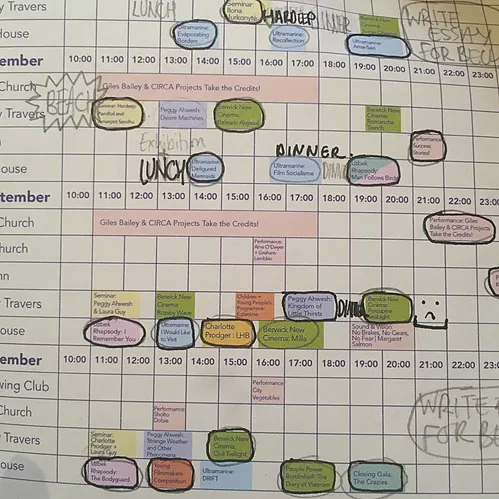 y Travers
LUNCH
Seminar:
Ilona
Jurkonyte
HARDEEP
DINNER
WRITE
ESSAY
FOR BECA
House
Ultramarine:
Evaporating
Borders
Ultramarine:
Recollection
Ultramarine:
ember 10:00 11:00 12:00 13:00 14:00 15:00 16:00 17:00 18:00 19:00 20:00 21:00 22:00 23:00
Church
Giles Bailey & CIRCA Projects Take the Credits!
BEACH
y Travers
Seminar: Hardeep
Pandhal and
Peggy Ahwesh:
Desire Machines
Berwick New
Cinema:
Berwick New
Cinema:
Romanche
Trench
Performance:
Success
Stories!
Exhibition
LUNCH
DINNER
ouse
Ultramarine:
Defigured
Mermaids
Ultramarine:
Film Socialisme
Uzbek
Rhapsody:
Man Follows Birds
tember 10:00 11:00 12:00 13:00 14:00 15:00 16:00 17:00 18:00 19:00 20:00 21:00 22:00 23:0
Church
Giles Bailey & CIRCA Projects Take the Credits!
Performance: Giles
Bailey & CIRCA Projects
Take the Credits!
hurch
Performance:
nn
Travers
Seminar:
Peggy Ahwesh
& Laura Guy
Berwick New
Cinema:
Rossby Wave
Children +
Young People's
Programme:
Peggy Ahwesh:
Kingdom of
Little Thirsts
Berwick New
Cinema:
ouse
Uzbek
Rhapsody: I
Remember You
Ultramarine:
I Would Like
to Visit
Charlotte
Prodger : LHB
Berwick New
Cinema: Milla
Sound & Vision
No Brakes, No Gears,
No Fear | Margaret
Salmon
ember 10:00 11:00 12:00 13:00 14:00 15:00 16:00 17:00 18:00 19:00 20:00 21:00 22:00 23:0
wing Club
Performance:
City
Vegetables
Church
Performance:
Sholto
Dobie
WRITE
FOR BE
Travers
Seminar:
Charlotte
Prodger +
Laura Guy
Peggy Ahwesh:
Strange Weather
and Other
Phenomena
Berwick New
Cinema:
Civil Twilight
ouse
Uzbek
Rhapsody:
The Bodyguard
Young
Filmmakers
Competition
Ultramarine:
DRIFT
People Power
Bombshell: The
Diary of Vietnam
Closing Gala:
The Crazies